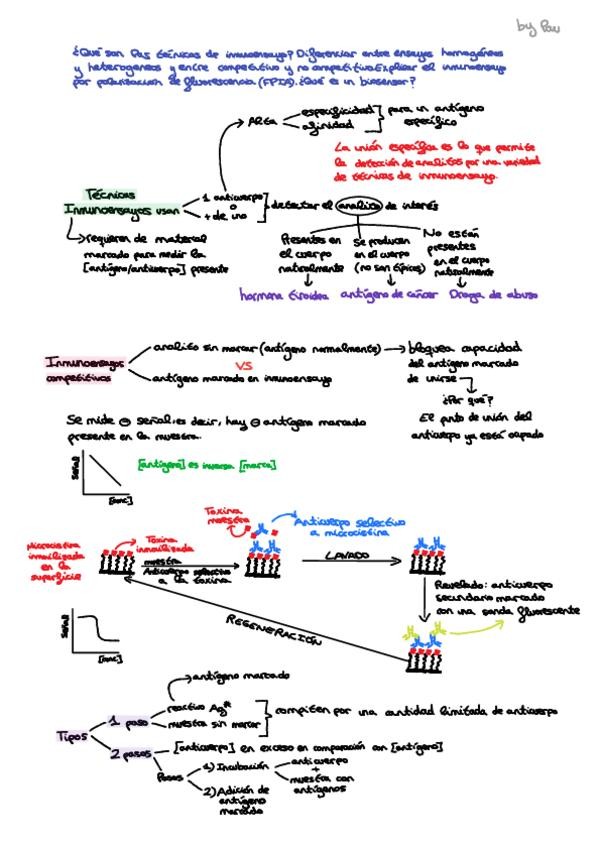 by Pau
¿Qué son las técnicas de inmunoensayo? Diferenciar entre ensayos homogéneos
y heterogéneos y entre competitivo y no competitivo. Explicar el inmunoensayo
por polarización de fluorescencia (FPIA). ¿Qué es un biosensor?
ALTA
especificidad
afinidad
para un antígeno
específico
La unión específica es lo que permite
la detección de analitos por una variedad
de técnicas de inmunoensayo.
Técnicas
Inmunoensayos usan
1 anticuerpo
o
+ de uno
detectar el analito de interés
requieren de material
marcado para medir la
[antígeno/anticuerpo] presente
Presentes en
el cuerpo
naturalmente
Se producen
en el cuerpo
(no son típicos)
No están
presentes
en el cuerpo
naturalmente
hormona tiroidea
antígeno de cáncer
Droga de abuso
Inmunoensayos
competitivos
analito sin marcar (antígeno normalmente)
VS
antígeno marcado en inmunoensayo
bloquea capacidad
del antígeno marcado
de unirse
¿Por qué?
El punto de unión del
anticuerpo ya está ocupado
Se mide ⊖ señal, es decir, hay ⊖ antígeno marcado
presente en la muestra.
Señal
[conc]
[antígeno] es inversa [marca]
Microcistina
inmovilizada
en la
superficie
Toxina
inmovilizada
muestra
Anticuerpo selectivo
a la toxina
Toxina
muestra
Anticuerpo selectivo
a microcistina
LAVADO
Revelado: anticuerpo
secundario marcado
con una sonda fluorescente
REGENERACIÓN
Señal
[conc]
antígeno marcado
Tipos
1 paso
reactivo Ag*
muestra sin marcar
compiten por una cantidad limitada de anticuerpo
2 pasos
[anticuerpo] en exceso en comparación con [antígeno]
Pasos
1) Incubación
anticuerpo
+
muestra con
antígenos
2) Adición de
antígeno
marcado